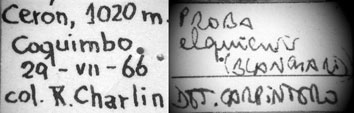 Cerón, 1020 m.
Coquimbo.
29-VII-66
col. R. Charlin
PROBA
elquiensis
(BLANCHARD)
DET. CARPINTERO